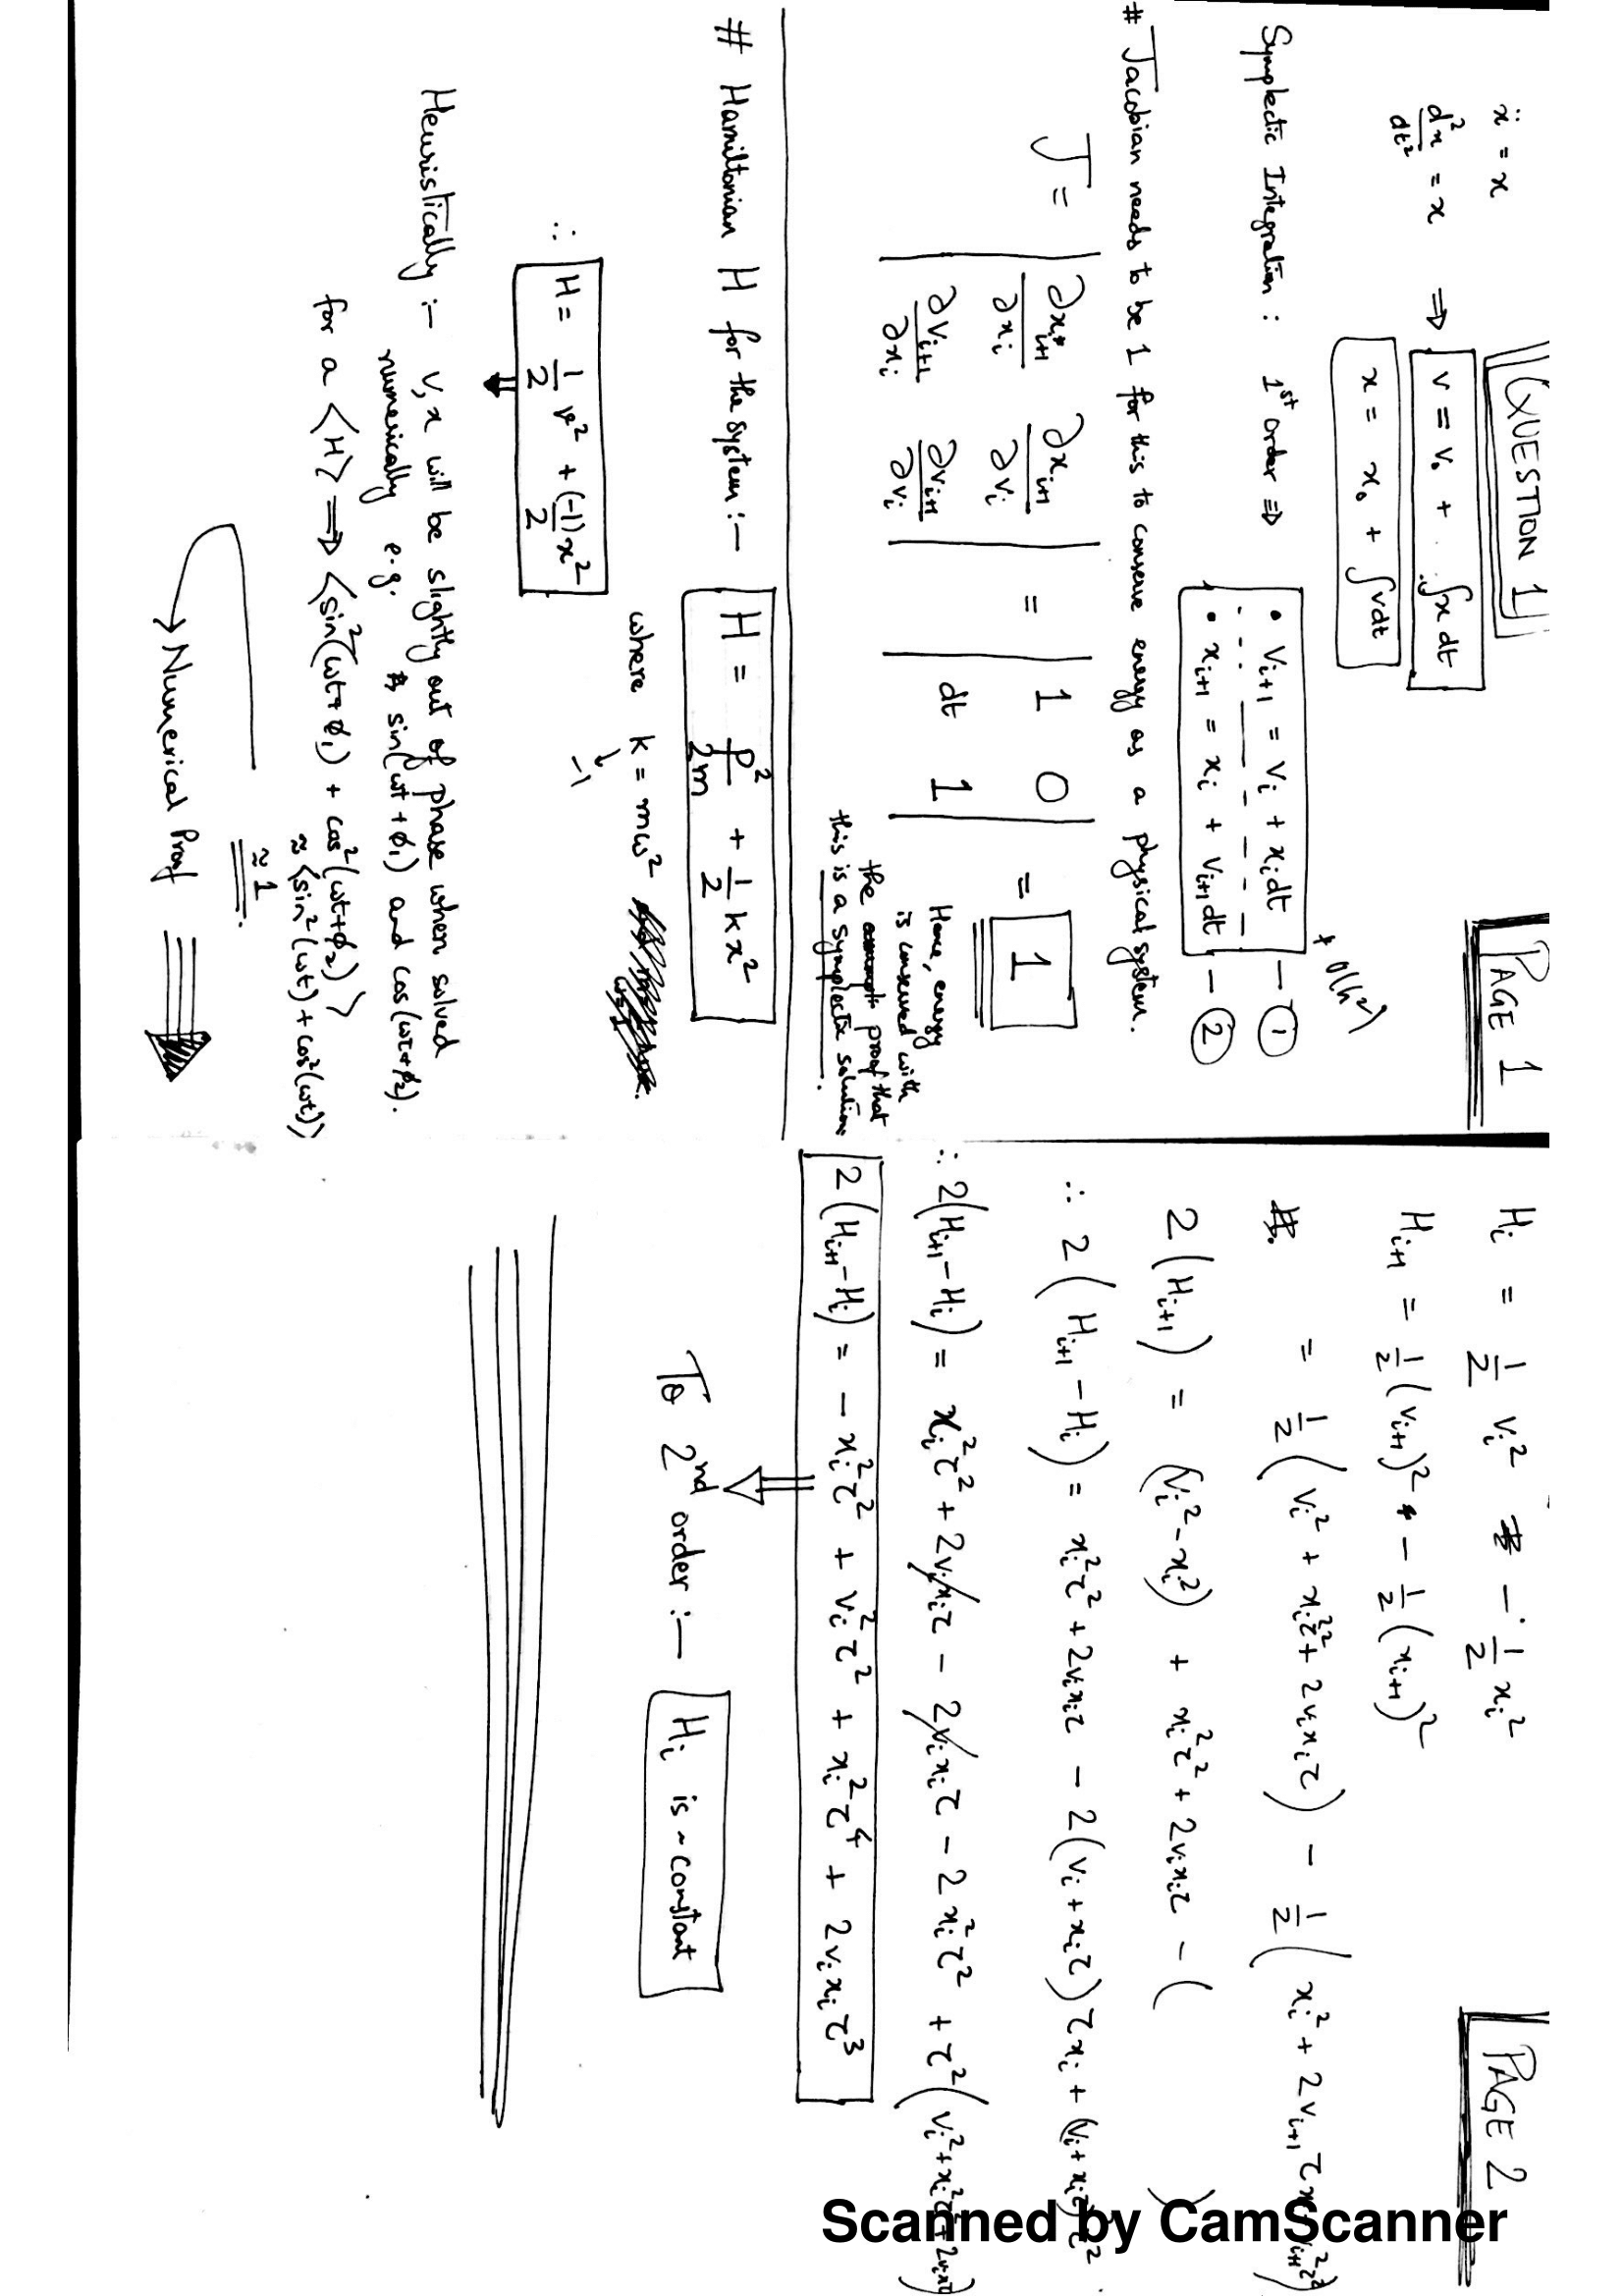 QUESTION 1
PAGE 1
ẍ = x
d²x/dt² = x ⇒ v = v₀ + ∫x dt
x = x₀ + ∫vdt
Symplectic Integration : 1st order ⇒ • Vᵢ₊₁ = Vᵢ + xᵢdt — ①
+ O(h²)
• xᵢ₊₁ = xᵢ + Vᵢ₊₁dt — ②
# Jacobian needs to be 1 for this to conserve energy as a physical system.
J = | ∂xᵢ₊₁/∂xᵢ ∂xᵢ₊₁/∂vᵢ | = | 1 0 | = 1
| ∂Vᵢ₊₁/∂xᵢ ∂Vᵢ₊₁/∂vᵢ | | dt 1 |
Hence, energy
is conserved with
the proof that
this is a symplectic solution.
# Hamiltonian H for the system :— H = p²/2m + 1/2 kx²
where k = mω²
-1
∴ H = 1/2 v² + (-1)/2 x²
Heuristically :— v, x will be slightly out of phase when solved
numerically e.g. sin(ωt + ϕ₁) and cos(ωt + ϕ₂).
for a <H> ⇒ <sin²(ωt + ϕ₁) + cos²(ωt + ϕ₂)>
≈ <sin²(ωt) + cos²(ωt)>
≈ 1
→ Numerical Proof
PAGE 2
Hᵢ = 1/2 vᵢ² - 1/2 xᵢ²
Hᵢ₊₁ = 1/2 (vᵢ₊₁)² - 1/2 (xᵢ₊₁)²
= 1/2 ( vᵢ² + xᵢ²τ² + 2vᵢxᵢτ ) - 1/2 ( xᵢ² + 2vᵢ₊₁τxᵢ
2 (Hᵢ₊₁) = (vᵢ² - xᵢ²) + xᵢ²τ² + 2vᵢxᵢτ - ( )
∴ 2 ( Hᵢ₊₁ - Hᵢ ) = xᵢ²τ² + 2vᵢxᵢτ - 2(vᵢ + xᵢτ)τxᵢ + (vᵢ + xᵢτ)²τ²
∴ 2(Hᵢ₊₁ - Hᵢ) = xᵢ²τ² + 2vᵢxᵢτ - 2vᵢxᵢτ - 2xᵢ²τ² + τ²(vᵢ² + xᵢ²τ² + 2vᵢxᵢτ)
2 (Hᵢ₊₁ - Hᵢ) = - xᵢ²τ² + vᵢ²τ² + xᵢ²τ⁴ + 2vᵢxᵢτ³
To 2nd order :— Hᵢ is ~ constant
Scanned by CamScanner